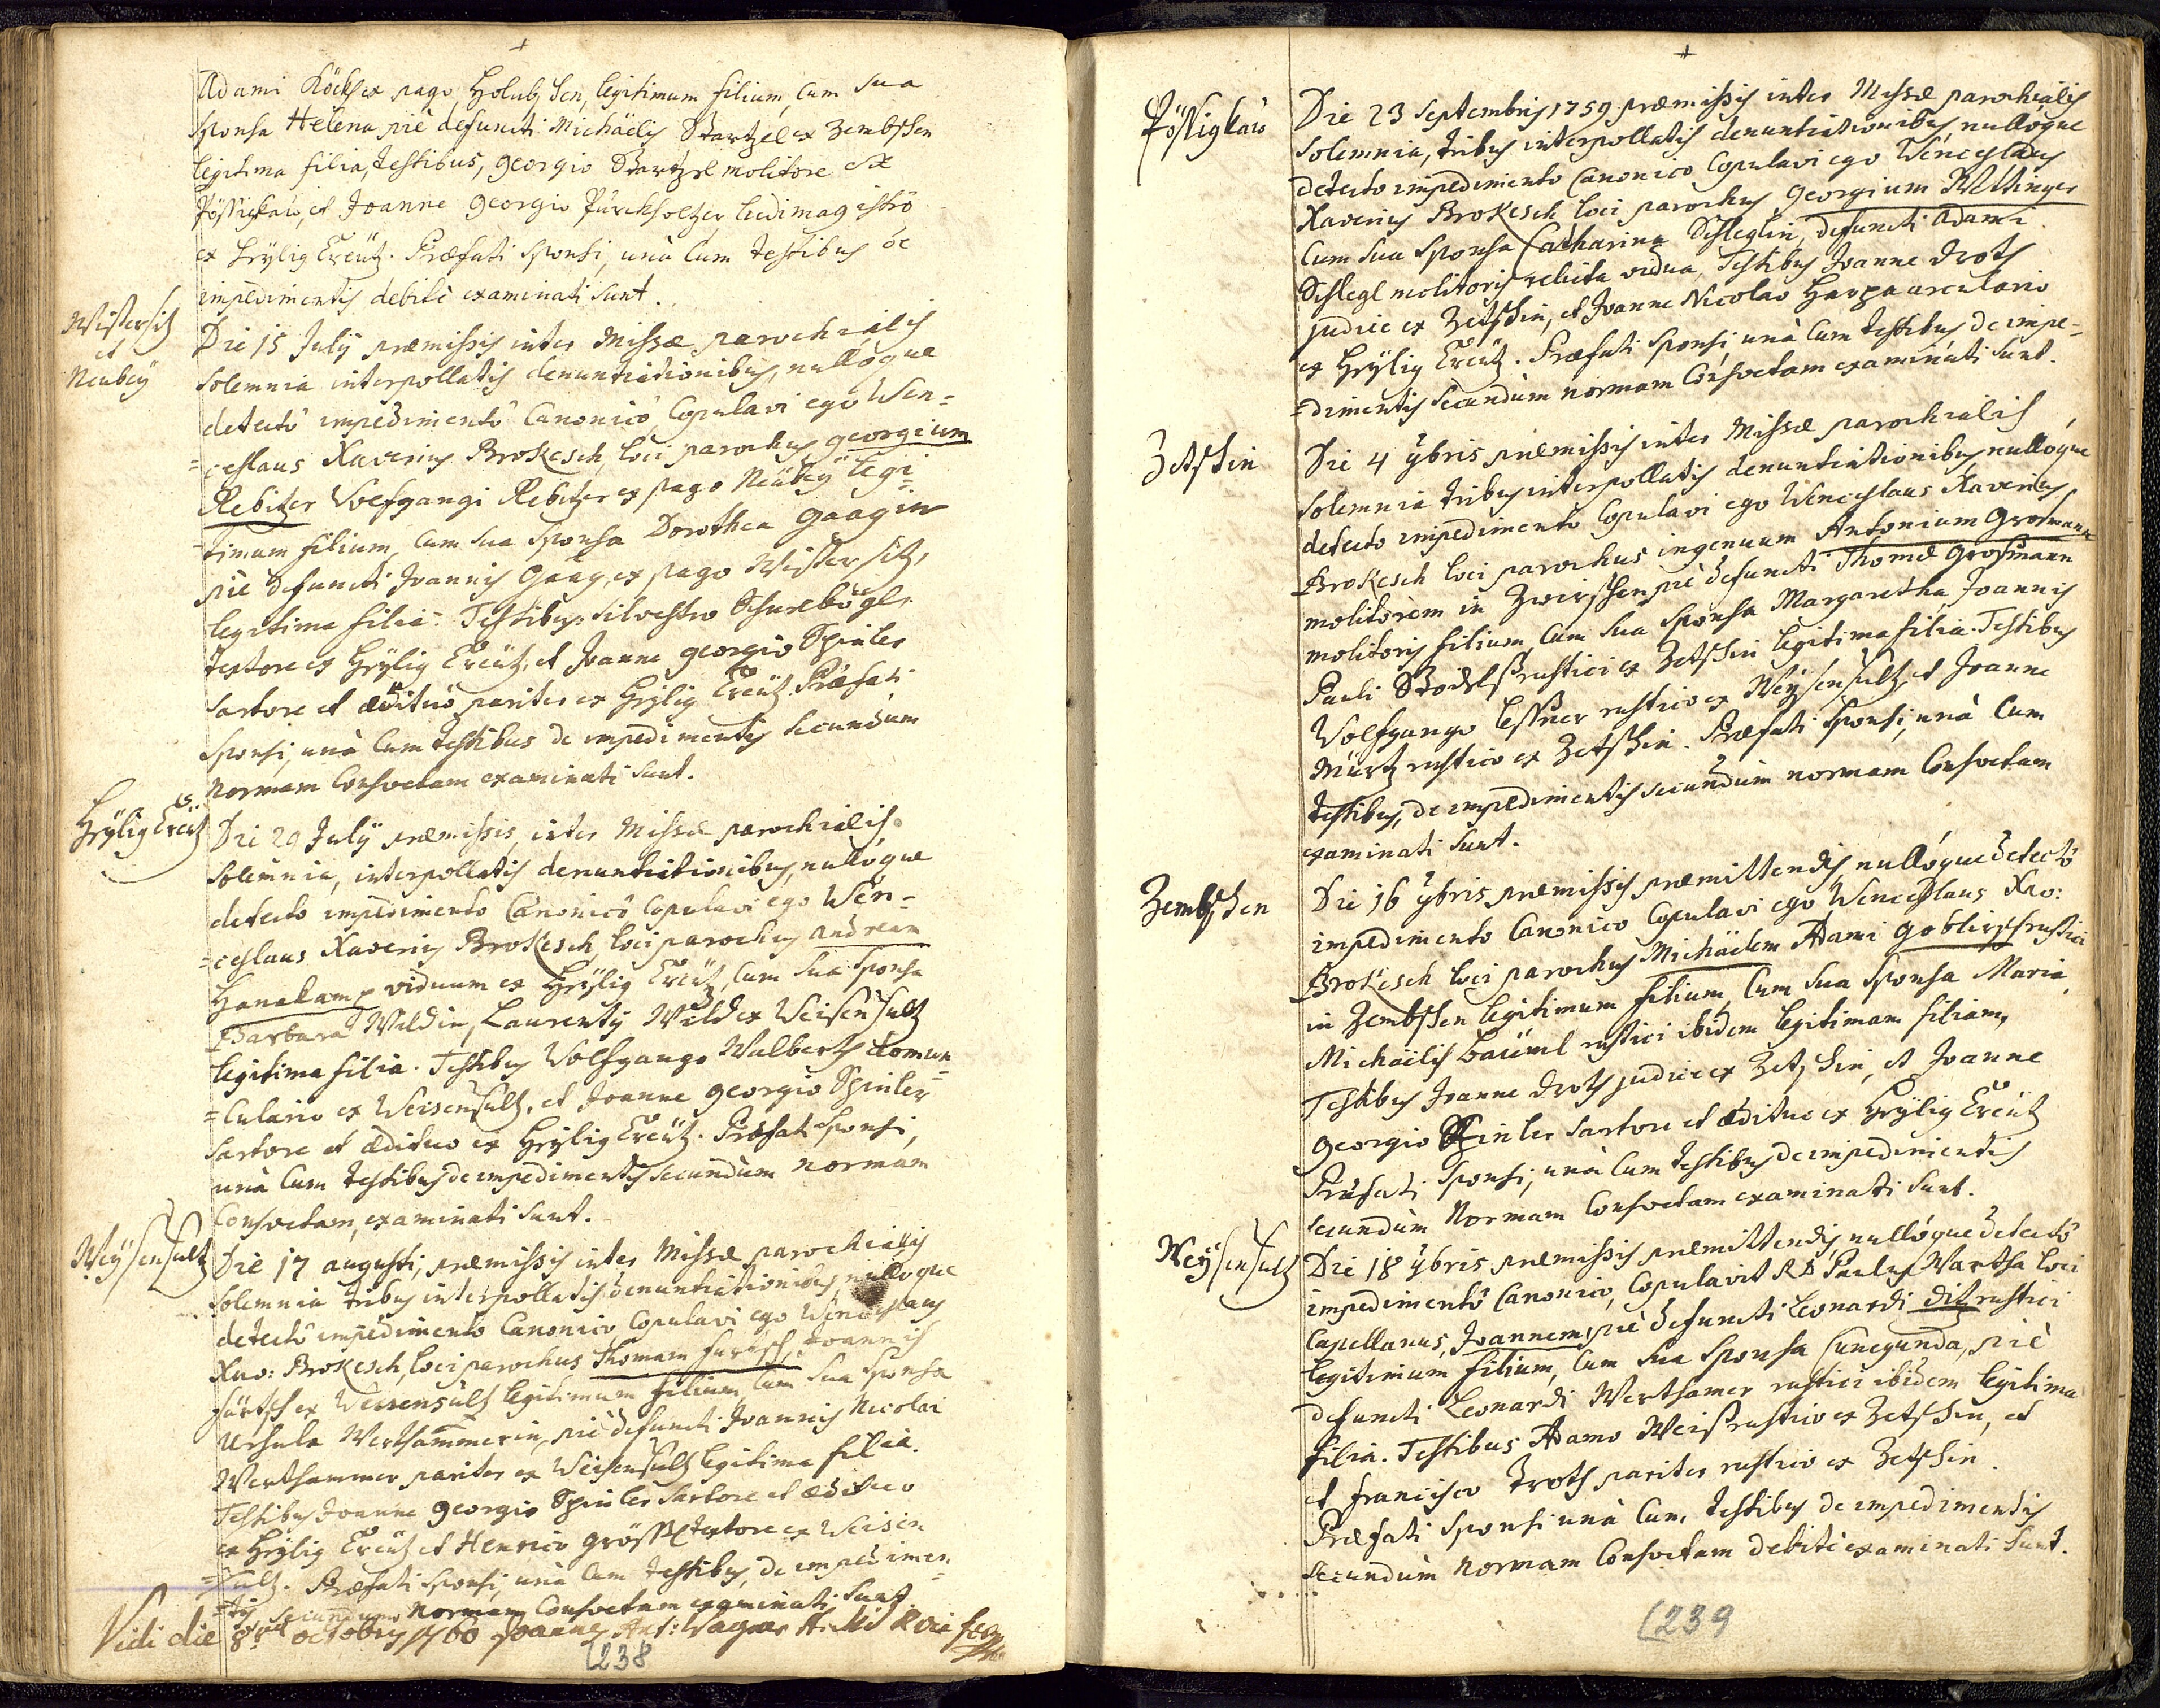 Adami Köcks ex pago Holubschen, legitimum filium, cum sua
sponsa Helena piè defuncti Michäelis Startzel ex Zembschen
legitima filia, testibus, Georgio Startzel molitore ex
Pössigkau, et Joanne Georgio Pürckholtzer ludimagistro
ex Heÿlig Creütz. Præfati sponsi, unà cum testibus de
impedimentis debitè examinati sunt.
Wistersitz
et
Neubeÿ
Die 15 Julÿ præmissis inter Missæ parochialis
solemnia interpollatis denuntiationibus, nullóque
detectô impedimentô Canonicô, Copulavi ego Wen=
=ceslaus Xaverius Brokesch, loci parochus Georgium
Rebitzer Wolfgangi Rebitzer ex pago Neübeÿ legi=
=timum filium, cum sua sponsa Dorothea Gaagin
piè defuncti Joannis Gaag, ex pago Wistersitz,
legitima filia. Testibus: Silvestro Schurlbögl
textore ex Heÿlig Creütz, et Joanne Georgio Spinler
sartore et ædituo pariter ex Heÿlig Creütz. Præfati
sponsi, unà cum testibus de impedimentis secundùm
normam consvetam examinati sunt.
Heÿlig Creütz
Die 29 Julÿ præmissis, inter Missæ parochialis
solemnia, interpollatis denuntiationibus, nullóque
detecto impedimento Canonicô copulavi ego Wen=
=ceslaus Xaverius Brokesch, loci parochus Andream
Hanakam, viduum ex Heÿlig Creütz, cum sua sponsa
Barbara Wildin, Laurentÿ Wild ex Weisensultz
legitima filia. Testibus Wolfgango Walberth domun=
=culario ex Weisensultz, et Joanne Georgio Spinler
sartore et ædituo ex Heÿlig Creütz. Præfati sponsi,
unà cum testibus de impedimentis secundùm normam
consvetam, examinati sunt.
Weÿsensultz
Die 17 augusti, præmissis inter Missæ parochialis
solemnia tribus interpollatis denuntiationibus, nullóque
detectô impedimento Canonico Copulavi ego Wenceslaus
Xav: Brokesch, loci parochus Thomam Fürtsch, Joannis
Fürtsch ex Weisensultz legitimum filium, cum sua sponsa
Ursula Werthammerin, piè defuncti Joannis Nicolai
Werthammer pariter ex Weisensultz legitima filia.
Testibus Joanne Georgio Spinler sartore et ædituo
ex Heÿlig Creütz et Henrico Grössl textore ex Weisen
=sultz. Præfati sponsi, unà cum testibus, de impedimen=
=tis secundum Normam Consvetam examinati sunt.
Vidi die 8va octobris 1760 Joannes Ant: Wagner
238
Pössigkau
Die 23 Septembris 1759 præmissis inter Missæ parochialis
solemnia, tribus interpollatis denuntiationibus, nullóque
detecto impedimento Canonico Copulavi ego Wenceslaus
Xaverius Brokesch loci parochus Georgium Wettinger
cum sua sponsa Catharina Schleglin, defuncti Adami
Schlegl molitoris relicta vidua, Testibus Joanne Droth
judice ex Zetschin, et Joanne Nicolao Harpa arculario
ex Heÿlig Creütz. Præfati sponsi, unà cum testibus de impe=
=dimentis secundùm normam consvetam examinati sunt.
Zetschin
Die 4 9bris præmissis inter Missæ parochialis
solemnia tribus interpollatis denuntiationibus, nullóque
detecto impedimentô Copulavi ego Wenceslaus Xaverius
Brokesch loci parochus ingenuum Antonium Grosmann
molitorem in Zwirschen piè defuncti Thomæ Grosmann
molitoris filium, cum sua sponsa Margaretha Joannis
Pauli Stodl rustici ex Zetschin legitima filia. Testibus
Wolfgango Lessner rustico ex Weÿsensultz, et Joanne
Mürtz rustico ex Zetschin. Præfati sponsi, unà cum
testibus, de impedimentis secundùm normam consvetam
examinati sunt.
Zembschen
Die 16 9bris præmissis præmittendis, nullóque detectô
impedimento Canonico Copulavi ego Wenceslaus Xav:
Brokesch loci parochus Michäelem Adami Goblirsch rustici
in Zembschen legitimum filium, cum sua sponsa Maria
Michäelis Bauml rustici ibidem legitimam filiam,
Testibus Joanne Droth judice ex Zetschin, et Joanne
Georgio Spinler sartore et ædituo ex Heÿlig Creütz
Præfati sponsi, unà cum testibus de impedimentis
secundùm Normam consvetam examinati sunt.
Weÿsensultz
Die 18 9bris præmissis præmittendis, nullóque detectô
impedimentô Canonico, Copulavit R D Paulus Wartha loci
Capellanus, Joannem, piè defuncti Leonardi Ditz rustici
legitimum filium, cum sua sponsa Cunegunda, piè
defuncti Leonardi Werthamer rustici ibidem legitima
filia. Testibus Adamo Weis rustico ex Zetschin, et
et Francisco Troth pariter rustico ex Zetschin.
Præfati sponsi unà cum testibus de impedimentis
secundùm Normam consvetam debitè examinati sunt.
239